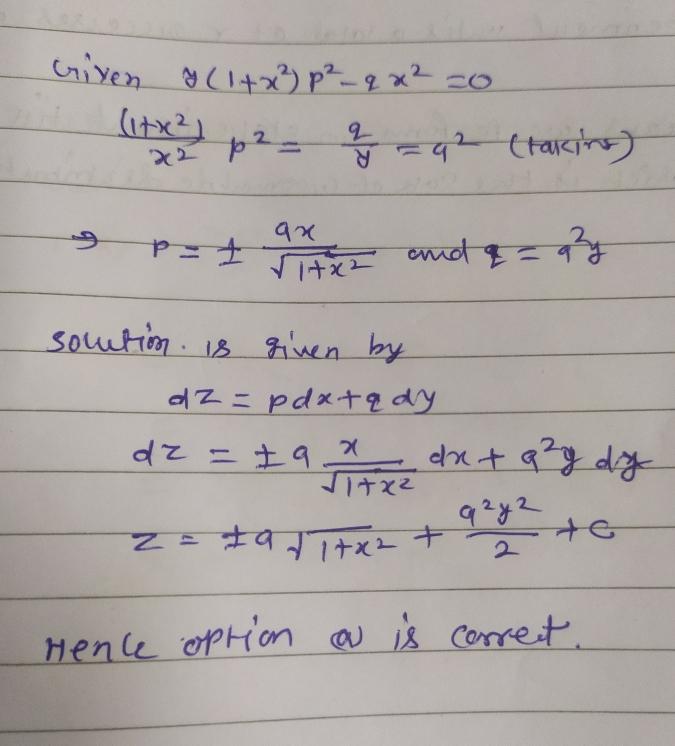 Given y(1+x²)p² - qx² = 0
(1+x²)/x² p² = q/y = a² (taking)
⇒ p = ± ax/√1+x² and q = a²y
solution. is given by
dz = pdx + qdy
dz = ±a x/√1+x² dx + a²y dy
z = ±a√1+x² + a²y²/2 + c
Hence option a) is correct.